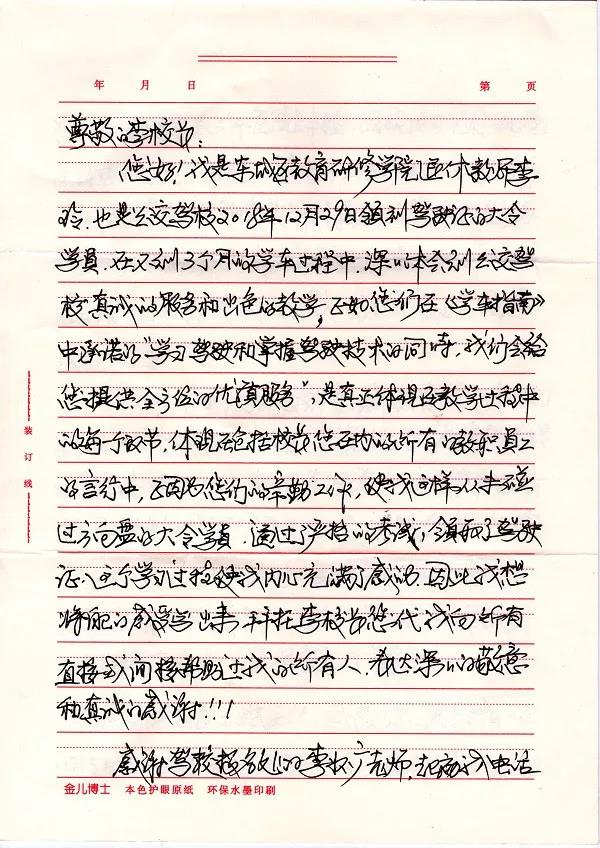 年 月 日 第 页
尊敬的李校长：
您好！我是东城区教育研修学院退休教师李
玲，也是公交驾校2018年12月29日领到驾驶证的大令
学员，在不到3个月的学车过程中，深深体会到公交驾
校真诚的服务和出色的教学，正如您们在《学车指南》
中承诺的"学习驾驶和掌握驾驶技术的同时，我们会给
您提供全方位的优质服务"，是真正体现在教学过程中
的每一个环节，体现在包括校长您在内的所有的教职员工
的言行中，正因为您们的辛勤工作，使我这样从未碰
过方向盘的大令学员，通过了严格的考试，领取了驾驶
证，这个学习过程使我内心充满了感动，因此我想
将我的感受写出来，并托李校长您代我向所有
直接或间接帮助过我的所有人，表达深深的敬意
和真诚的感谢！！！
感谢驾校报名处的李 老师，我电话
装订线
金儿博士 本色护眼原纸 环保水墨印刷